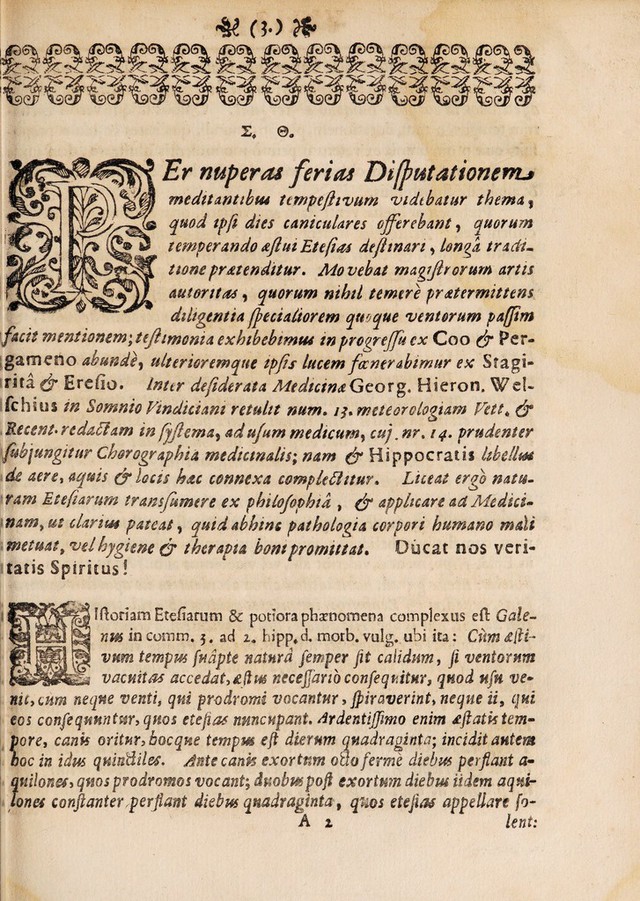 (3.)
Σ. Θ.
PEr nuperas ferias Disputationem
meditantibus tempestivum videbatur thema,
quod ipsi dies caniculares offerebant, quorum
temperando æstui Etesias destinari, longâ tradi-
tione prætenditur. Movebat magistrorum artis
autoritas, quorum nihil temerè prætermittens
diligentia specialiorem quoque ventorum passim
facit mentionem; testimonia exhibebimus in progressu ex Coo & Per-
gameno abundè, ulterioremque ipsis lucem fœnerabimur ex Stagi-
ritâ & Eresio. Inter desiderata Medicinæ Georg. Hieron. Wel-
schius in Somnio Vindiciani retulit num. 13. meteorologiam Vett. &
Recent. redactam in systema, ad usum medicum, cuj. nr. 14. prudenter
subjungitur Chorographia medicinalis; nam & Hippocratis libellus
de aere, aquis & locis hæc connexa complectitur. Liceat ergò natu-
ram Etesiarum transsumere ex philosophiâ, & applicare ad Medici-
nam, ut clarius pateat, quid abhinc pathologia corpori humano mali
metuat, vel hygiene & therapia boni promittat. Ducat nos veri-
tatis Spiritus!
HIstoriam Etesiarum & potiora phænomena complexus est Gale-
nus in comm. 3. ad 2. hipp. d. morb. vulg. ubi ita: Cùm æsti-
vum tempus suâpte naturâ semper sit calidum, si ventorum
vacuitas accedat, æstus necessariò consequitur, quod usu ve-
nit, cum neque venti, qui prodromi vocantur, spiraverint, neque ii, qui
eos consequuntur, quos etesias nuncupant. Ardentissimo enim æstatis tem-
pore, canis oritur, hocque tempus est dierum quadraginta; incidit autem
hoc in idus quinctiles. Ante canis exortum octo fermè diebus perflant a-
quilones, quos prodromos vocant; duobus post exortum diebus iidem aqui-
lones constanter perflant diebus quadraginta, quos etesias appellare so-
A 2 lent: